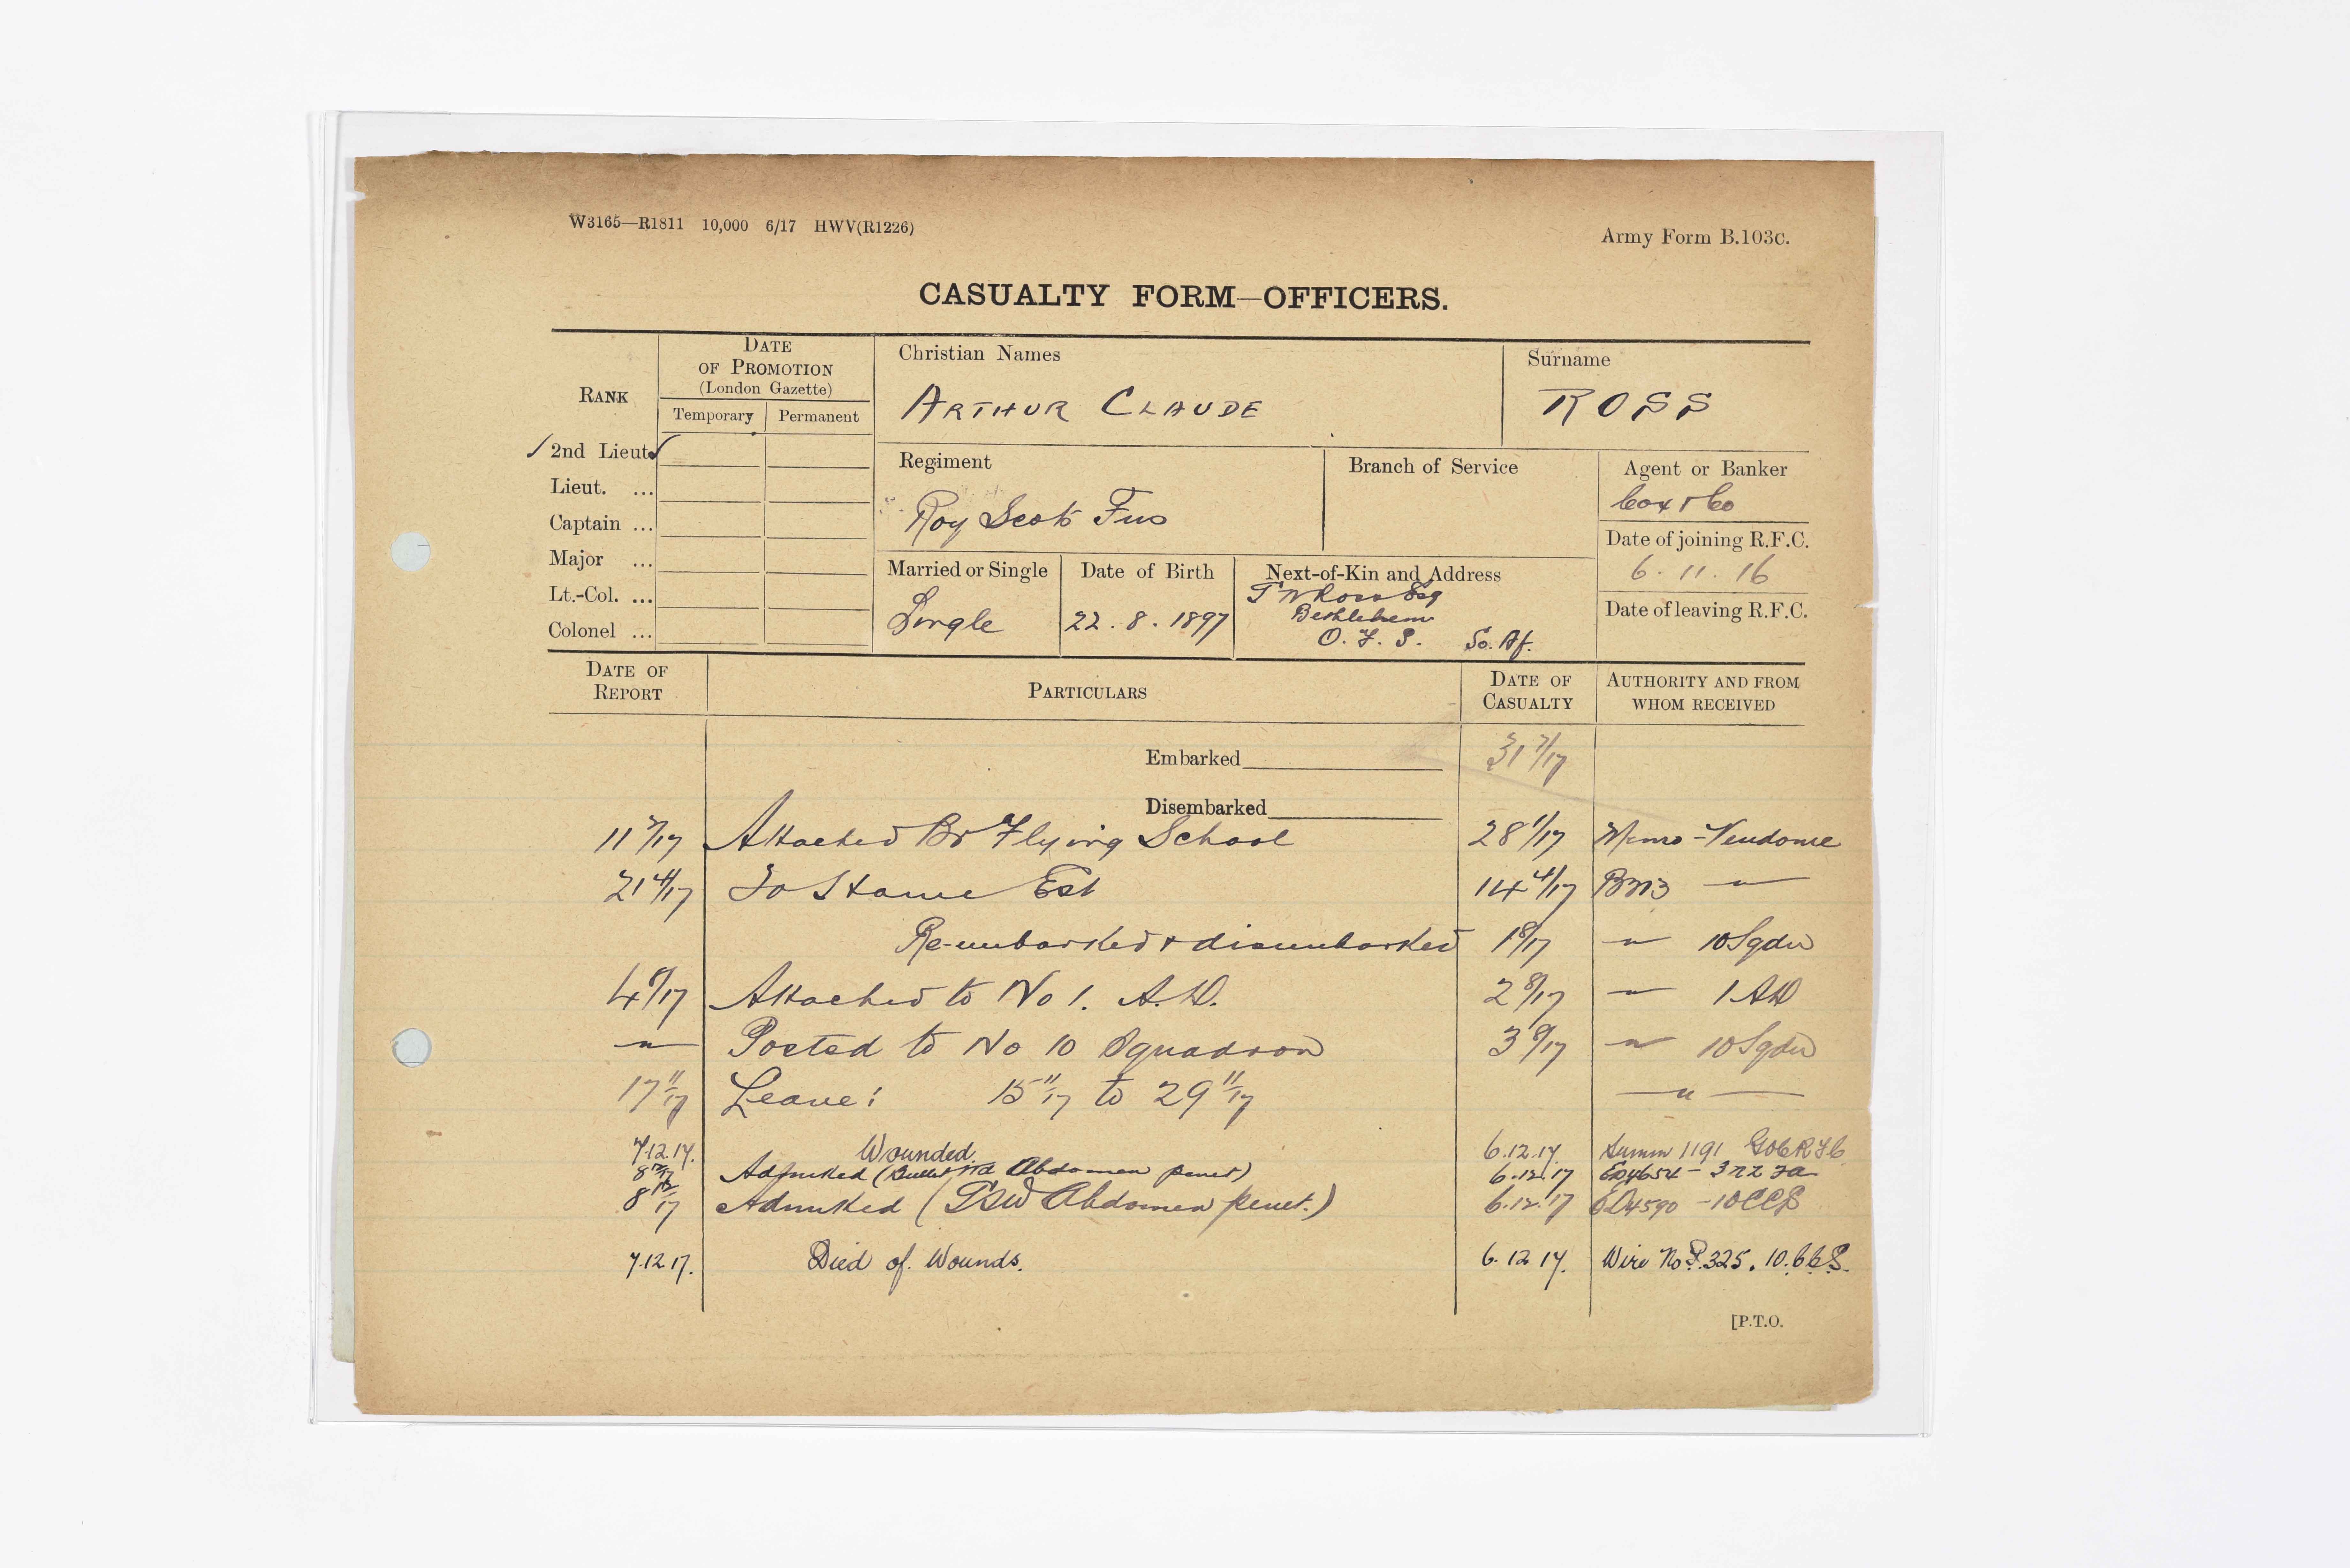 W3165—R1811 10,000 6/17 HWV(R1226)
Army Form B.103c.
CASUALTY FORM—OFFICERS.
RANK
DATE OF PROMOTION
(London Gazette)
Temporary Permanent
Christian Names
ARTHUR CLAUDE
Surname
ROSS
✓ 2nd Lieut. ✓
Lieut. ...
Captain ...
Major ...
Lt.-Col. ...
Colonel ...
Regiment
Roy Scots Fus
Branch of Service
Agent or Banker
Cox & Co
Date of joining R.F.C.
6.11.16
Date of leaving R.F.C.
Married or Single
Single
Date of Birth
22.8.1897
Next-of-Kin and Address
Ross Esq
Bethlehem
O.F.S. So. Af.
DATE OF REPORT PARTICULARS DATE OF CASUALTY AUTHORITY AND FROM WHOM RECEIVED
Embarked 31 7/17
Disembarked
11 2/17 Attached Br Flying School 28 1/17 Memo - Vendome
21 4/17 To Home Est 14 4/17 B213 — " —
Re-embarked & disembarked 1 8/17 — " — 10 Sqdn
4 8/17 Attached to No 1. A.D. 2 8/17 — " — 1 AD
— " — Posted to No 10 Squadron 3 8/17 — " — 10 Sqdn
17 11/17 Leave: 15 11/17 to 29 11/17 — " —
7.12.17. Wounded. 6.12.17. Summ 1191 GOC RFC
8 12/17 Admitted (Bullet Wd Abdomen penet) 6.12.17 ED4654 - 3 NZ FA
8 12/17 Admitted (GSW Abdomen penet.) 6.12.17 ED4590 - 10 CCS
7.12.17. Died of Wounds. 6.12.17. Wire No P.325. 10.C.C.S.
[P.T.O.